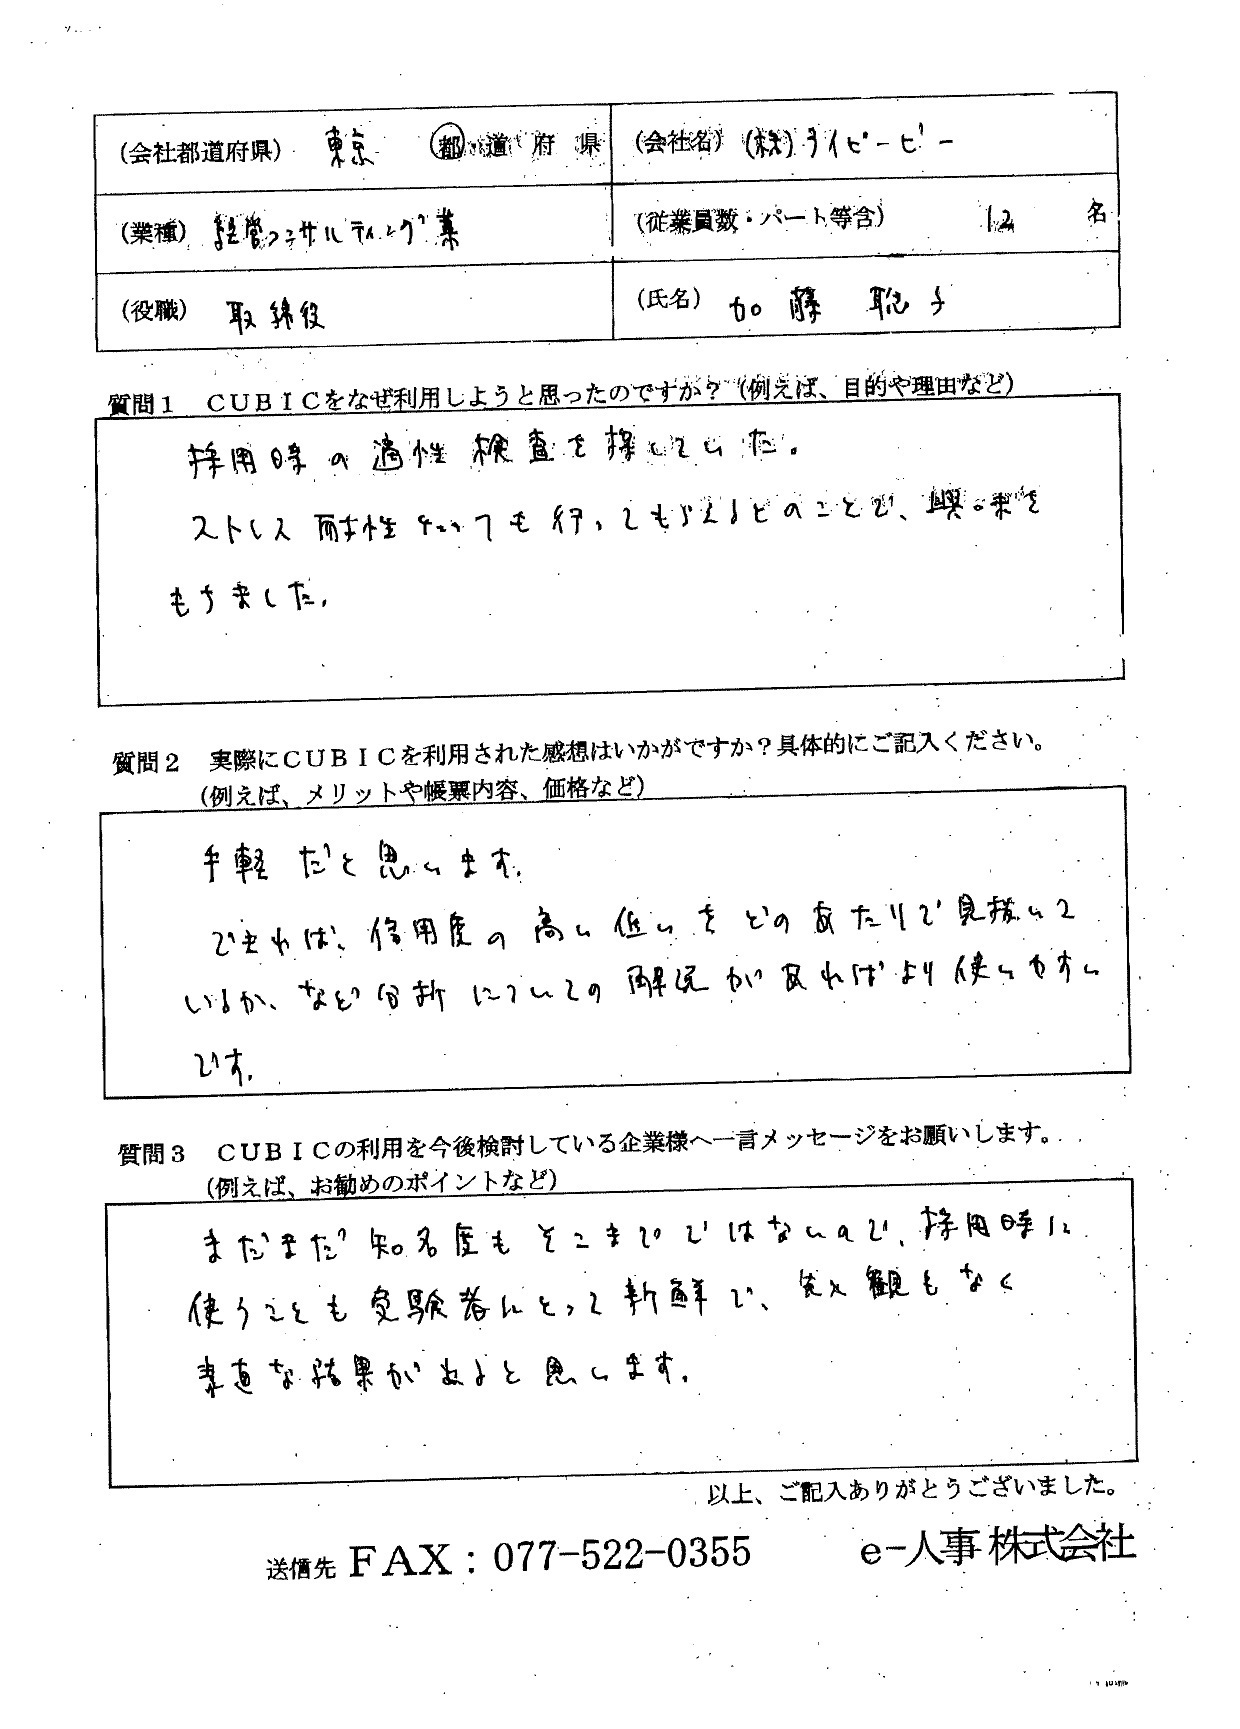 (会社都道府県) 東京 都 道 府 県 (会社名) (株)ライビービー
(業種) 経営コンサルティング業 (従業員数・パート等含) 12 名
(役職) 取締役 (氏名) 加藤 聡子
質問1 CUBICをなぜ利用しようと思ったのですか？(例えば、目的や理由など)
採用時の適性検査を探していた。
ストレス耐性チェックも行ってもらえるとのことで、興味を
もちました。
質問2 実際にCUBICを利用された感想はいかがですか？具体的にご記入ください。
(例えば、メリットや帳票内容、価格など)
手軽だと思います。
できれば、信用度の高い低いをどのあたりで見抜いて
いるか、など分析についての解説があればより使いやすい
です。
質問3 CUBICの利用を今後検討している企業様へ一言メッセージをお願いします。
(例えば、お勧めのポイントなど)
まだまだ知名度もそこまでではないので、採用時に
使うことも受験者にとって新鮮で、先入観もなく
素直な結果が出ると思います。
以上、ご記入ありがとうございました。
送信先 FAX：077-522-0355 e-人事 株式会社